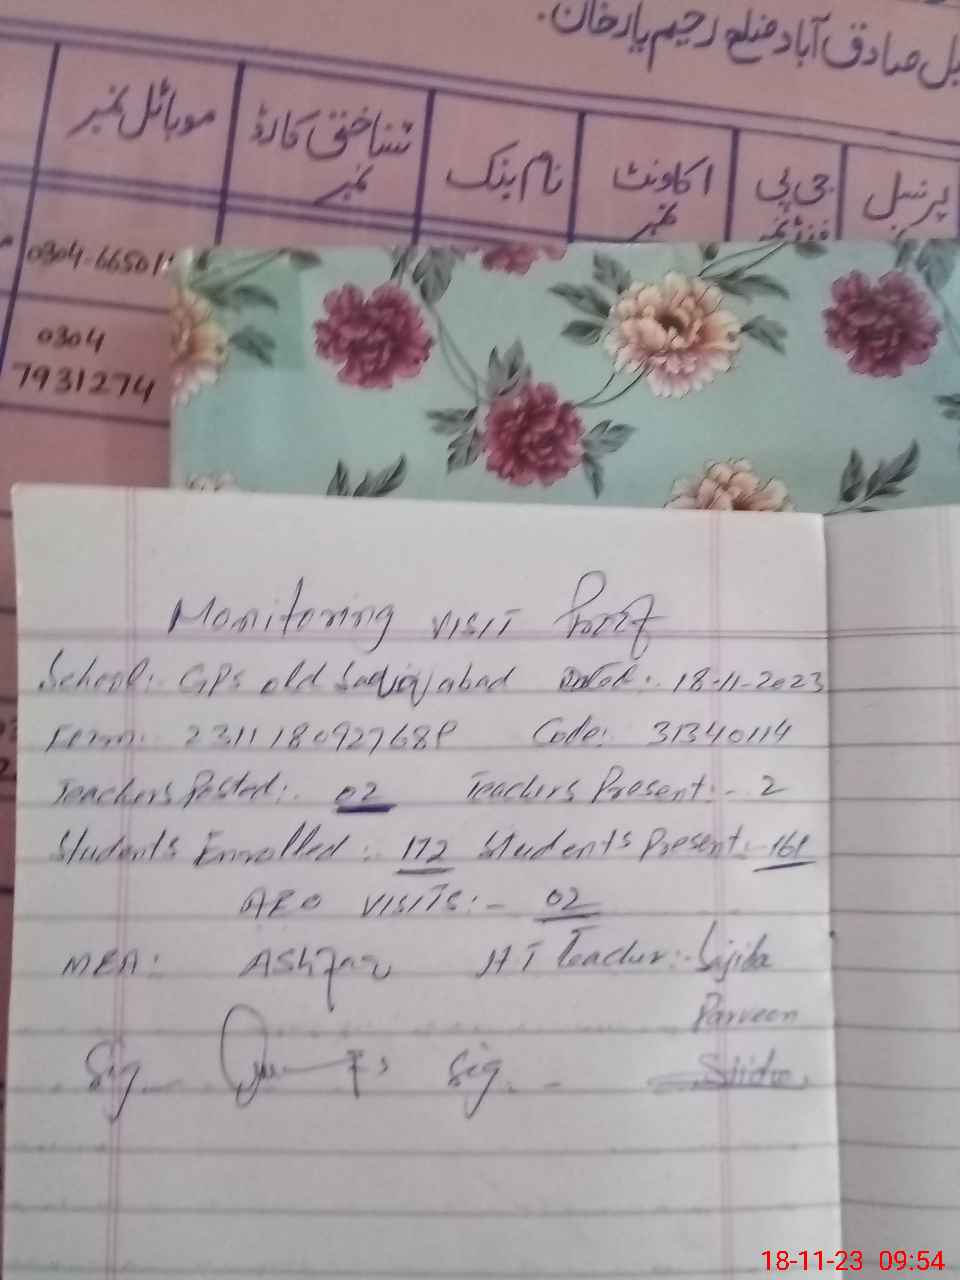 صادق آباد ضلع رحیم یار خان.
پرنسل
جی پی فنڈ نمبر
اکاونٹ نمبر
نام بنک
شناختی کارڈ نمبر
موبائل نمبر
0304-66501
0304
7931274
Monitoring VISIT Proof
School: GPS old Sadiqabad Dated:. 18-11-2023
Form: 2311180927689 Code: 31340114
Teachers Posted:. 02 Teachers Present:- 2
Students Enrolled:. 172 Students Present:- 161
AEO VISITS:- 02
MEA: Ashfaq HT Teacher:- Sajida
Parveen
Sig. Sig. -
18-11-23 09:54